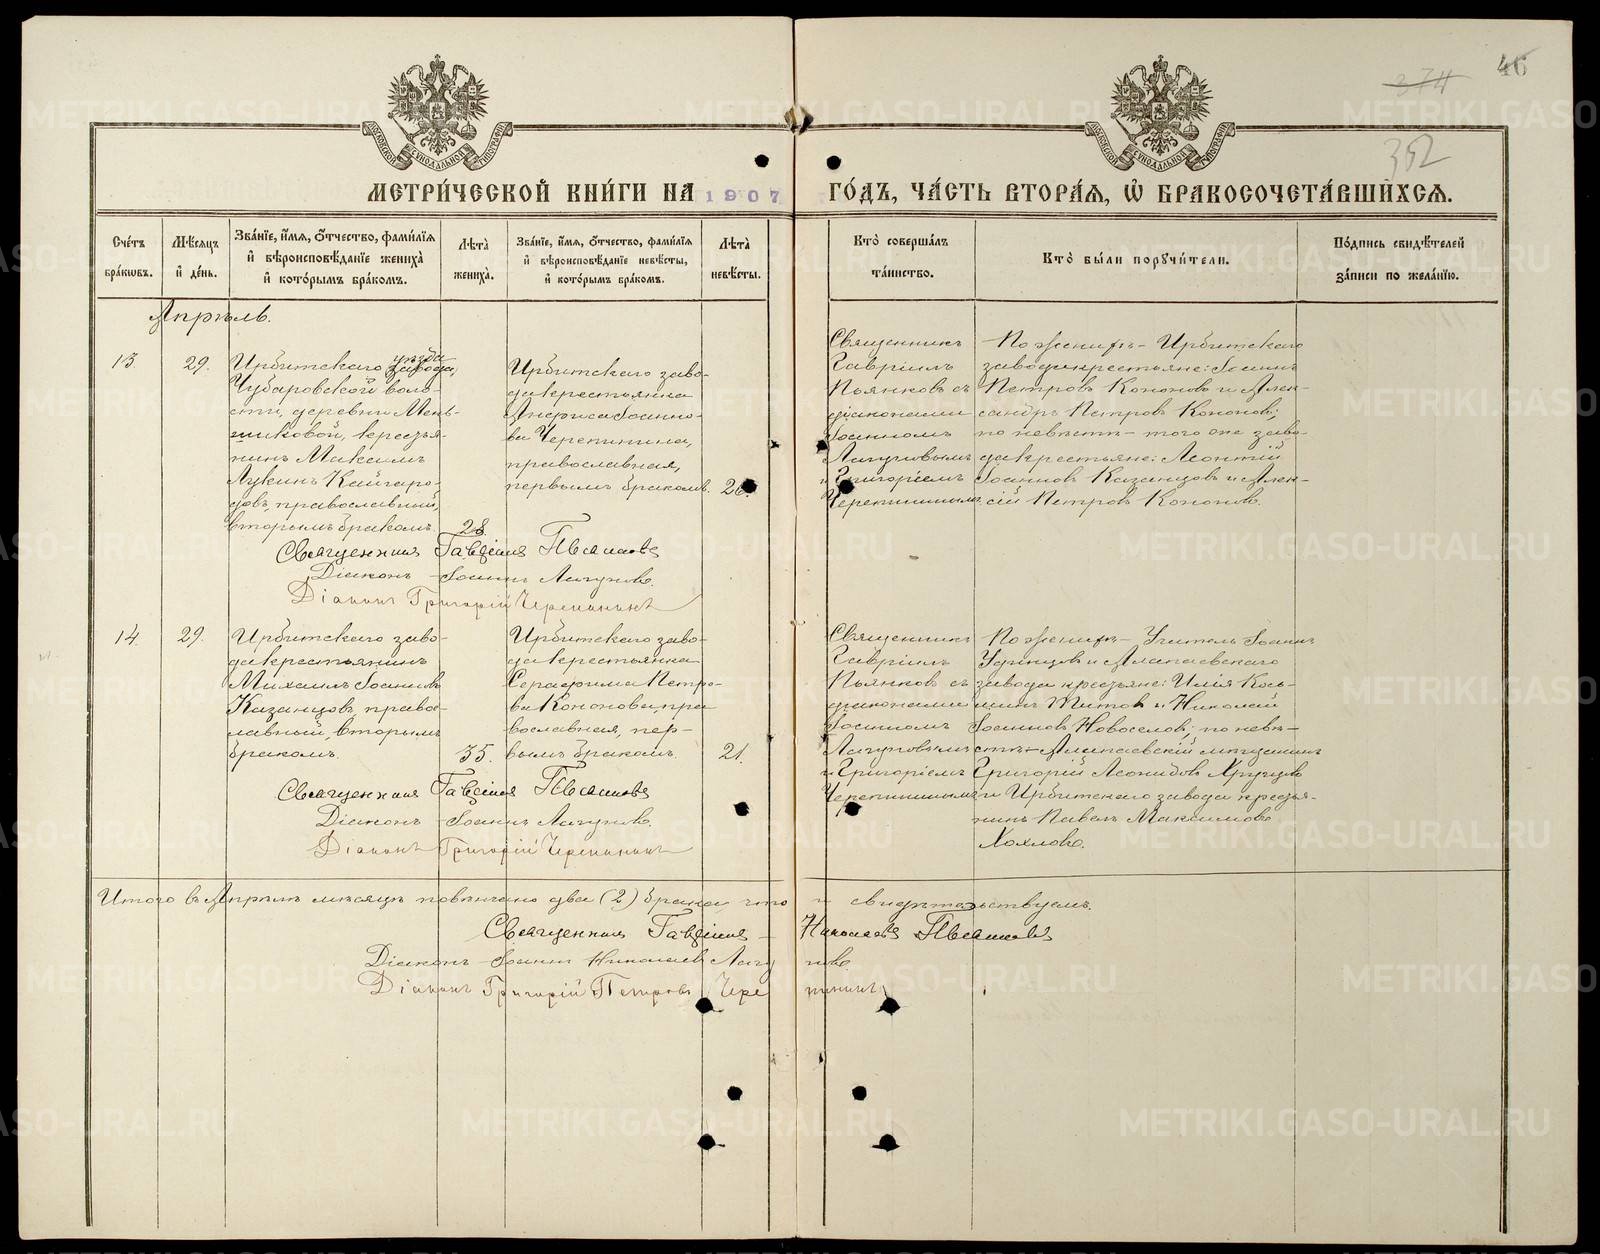 374
46
352
МОСКОВСКОЙ СѴНОДАЛЬНОЙ ТИПОГРАФІИ
МОСКОВСКОЙ СѴНОДАЛЬНОЙ ТИПОГРАФІИ
МЕТРИ́ЧЕСКОЙ КНИ́ГИ НА 1907 ГО́ДЪ, ЧА́СТЬ ВТОРА́Я, Ѽ БРАКОСОЧЕТА́ВШИХСЯ.
Сче́тъ бра́кѡвъ.
Мѣ́сяцъ и́ де́нь.
Зва́нїе, и́мя, ѻ́тчество, фами́лїя и́ вѣроисповѣ́данїе жениха̀ и́ кото́рымъ бра́комъ.
Лѣ́та̀ жениха̀.
Зва́нїе, и́мя, ѻ́тчество, фами́лїя и́ вѣроисповѣ́данїе невѣ́сты, и́ кото́рымъ бра́комъ.
Лѣ́та̀ невѣ́сты.
Кто̀ соверша́лъ та́инство.
Кто̀ бы́ли порꙋчи́тели.
По́дпись свидѣ́телей за́писи по жела́нїю.
Апрѣль.
13
29.
Ирбитскаго уѣзда
завода,
Чубаровской воло-
сти, деревни Мень-
шиковой, крестья-
нинъ Максимъ
Лукинъ Кайгаро-
довъ, православный,
вторымъ бракомъ.
28.
Ирбитскаго заво-
да крестьянка
Анфиса Іоанно-
ва Черепанина,
православная,
первымъ бракомъ.
26
Священникъ
Гавріилъ
Пьянковъ съ
діаконами
Іоанномъ
Лагуновымъ
и Григоріемъ
Черепанинымъ
По женихѣ – Ирбитскаго
завода крестьяне: Іоаннъ
Петровъ Кононовъ и Алек-
сандръ Петровъ Кононовъ;
по невѣстѣ – того же заво-
да крестьяне: Леонтій
Іоанновъ Казанцовъ и Алек-
сій Петровъ Кононовъ.
Священникъ Гавріилъ Пьянковъ
Діаконъ Іоаннъ Лагуновъ.
Діаконъ Григорій Черепанинъ
14.
29.
Ирбитскаго заво-
да крестьянинъ
Михаилъ Іоанновъ
Казанцовъ, право-
славный, вторымъ
бракомъ.
35.
Ирбитскаго заво-
да крестьянка
Серафима Петро-
ва Кононова, пра-
вославная, пер-
вымъ бракомъ.
21.
Священникъ
Гавріилъ
Пьянковъ съ
діаконами
Іоанномъ
Лагуновымъ
и Григоріемъ
Черепанинымъ
По женихѣ – Учитель Іоаннъ
Удинцовъ и Алапаевскаго
завода крестьяне: Илія Кось-
минъ Титовъ и Николай
Іоанновъ Новоселовъ; по невѣ-
стѣ – Алапаевскій мѣщанинъ
Григорій Леонидовъ
и Ирбитскаго завода крестья-
нинъ Павелъ Максимовъ
Хохловъ.
Священникъ Гавріилъ Пьянковъ
Діаконъ Іоаннъ Лагуновъ.
Діаконъ Григорій Черепанинъ
Итого въ Апрѣлѣ мѣсяцѣ повѣнчано два (2) брака, что и свидѣтельствуемъ.
Священникъ Гавріилъ Николаевъ Пьянковъ
Діаконъ Іоаннъ Николаевъ Лагуновъ.
Діаконъ Григорій Петровъ Черепанинъ
METRIKI.GASO-URAL.RU